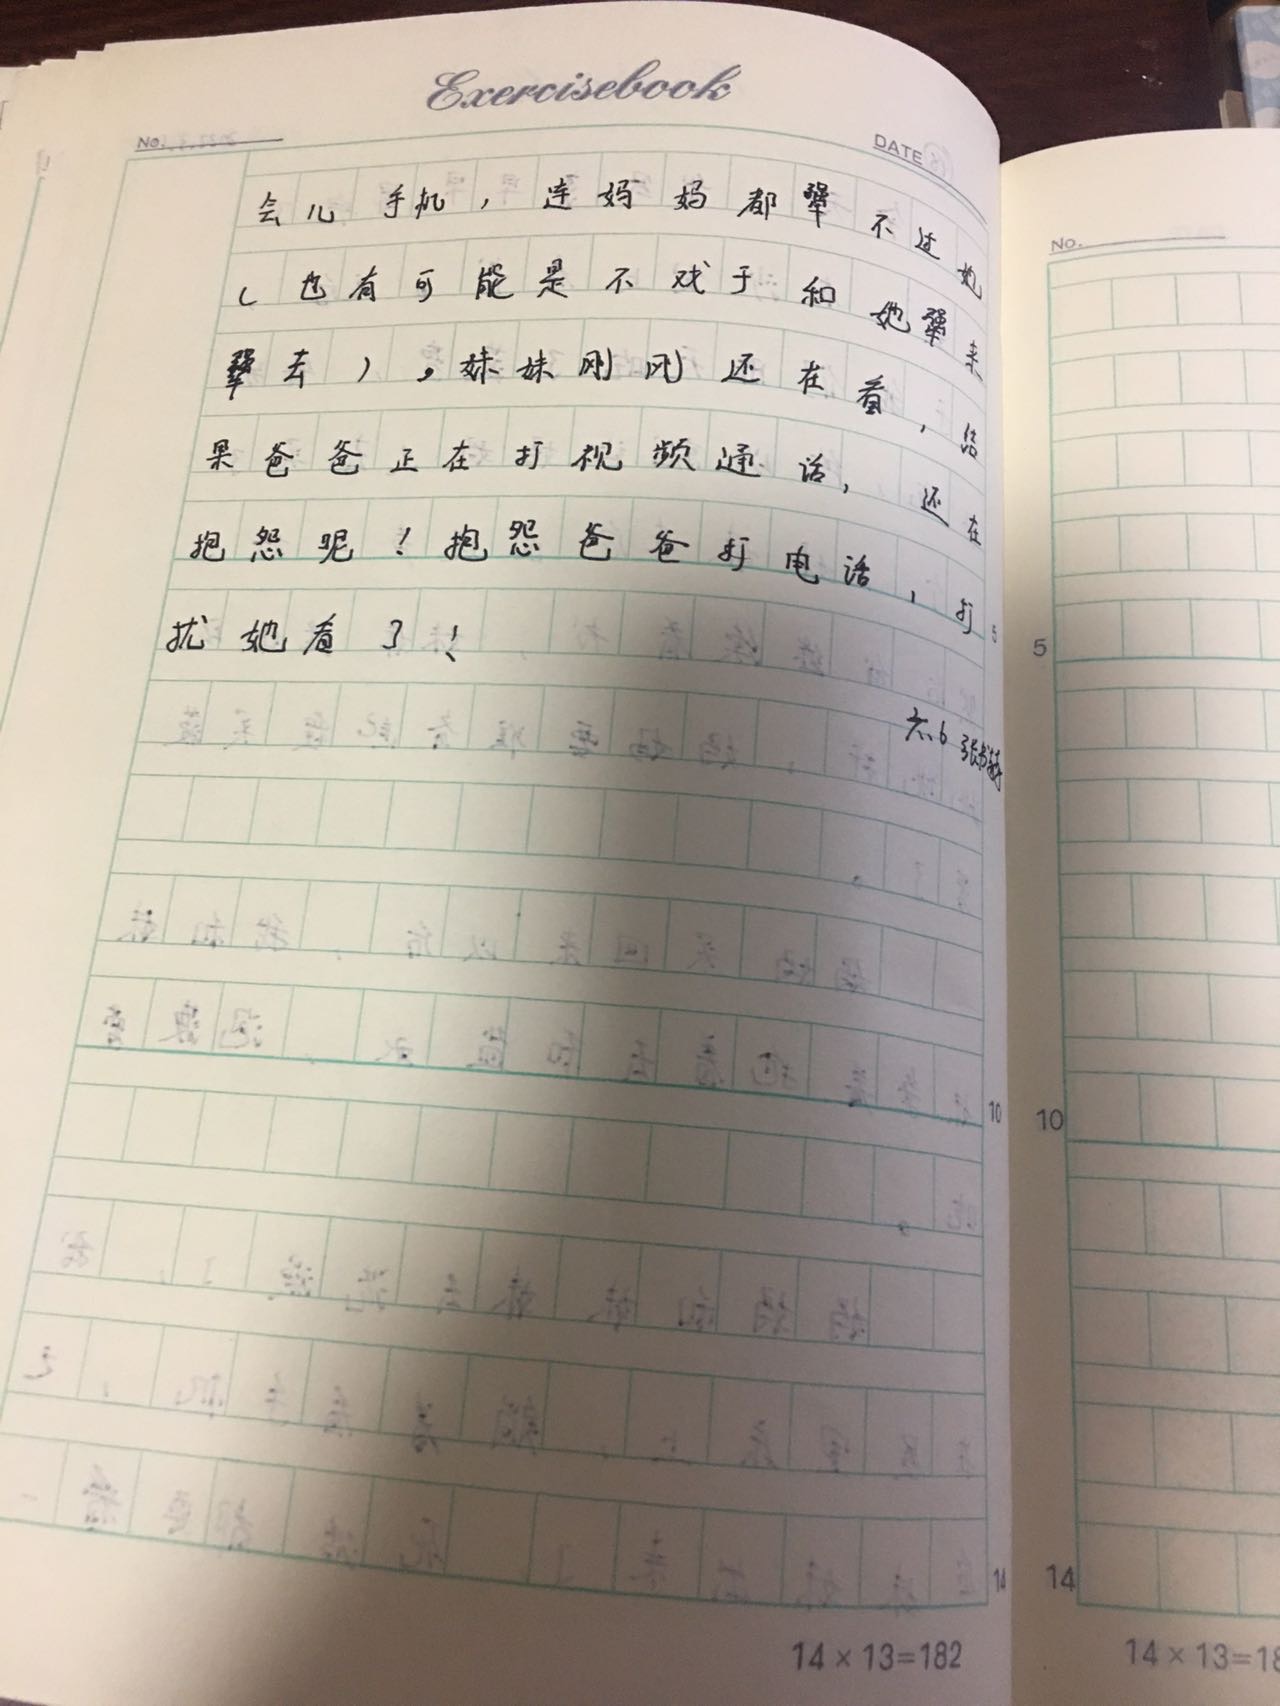 Exercisebook
No.
DATE
会儿手机，连妈妈都犟不过她
（也有可能是不戏于和她犟来
犟去），妹妹刚刚还在看，结
果爸爸正在打视频通话，还在
抱怨呢！抱怨爸爸打电话，打
扰她看了！
六.6 张书
5
10
14
14×13=182
No.
5
10
14
14×13=18